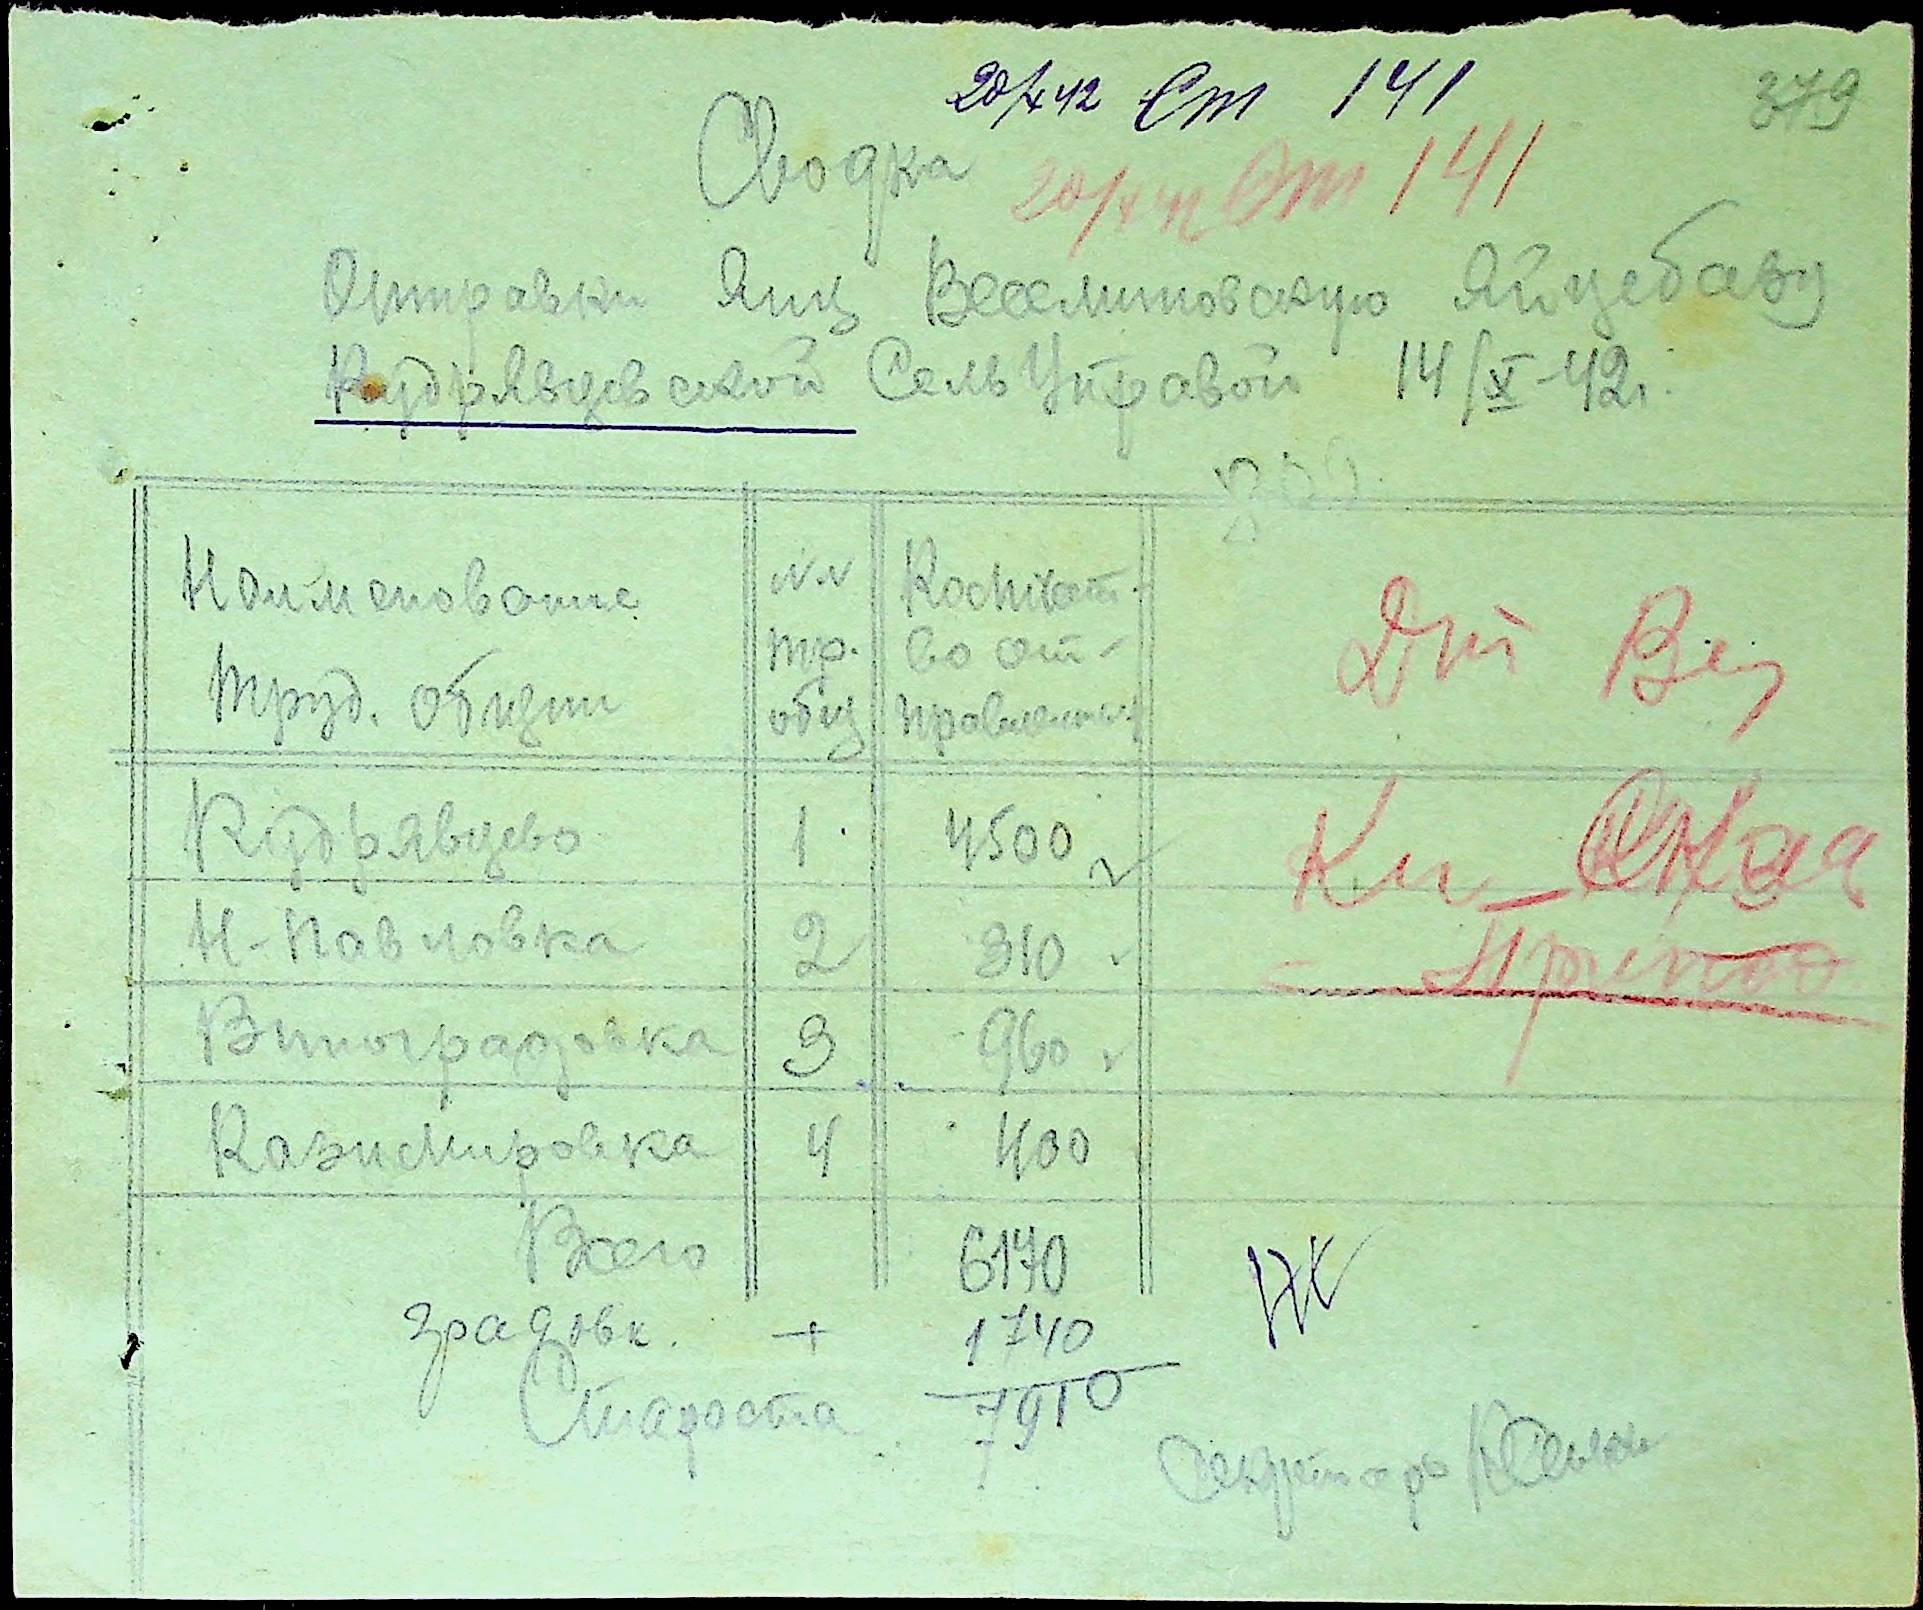 20/X 42 Ст 141
379
Сводка
20/X 42 Ст 141
Отправки Яиц Веселиновскую Яйцебазу
Кудрявцевской СельУправой 14/X-42г.
Наименование
труд. общин
№№
тр.
общ
Количест-
во от-
правленных
Кудрявцево 1. 4500
Н-Павловка 2 310
Виноградовка 3 960
Казимировка 4 400
Всего 6170
градовк. + 1740
7910
Староста
Секретарь